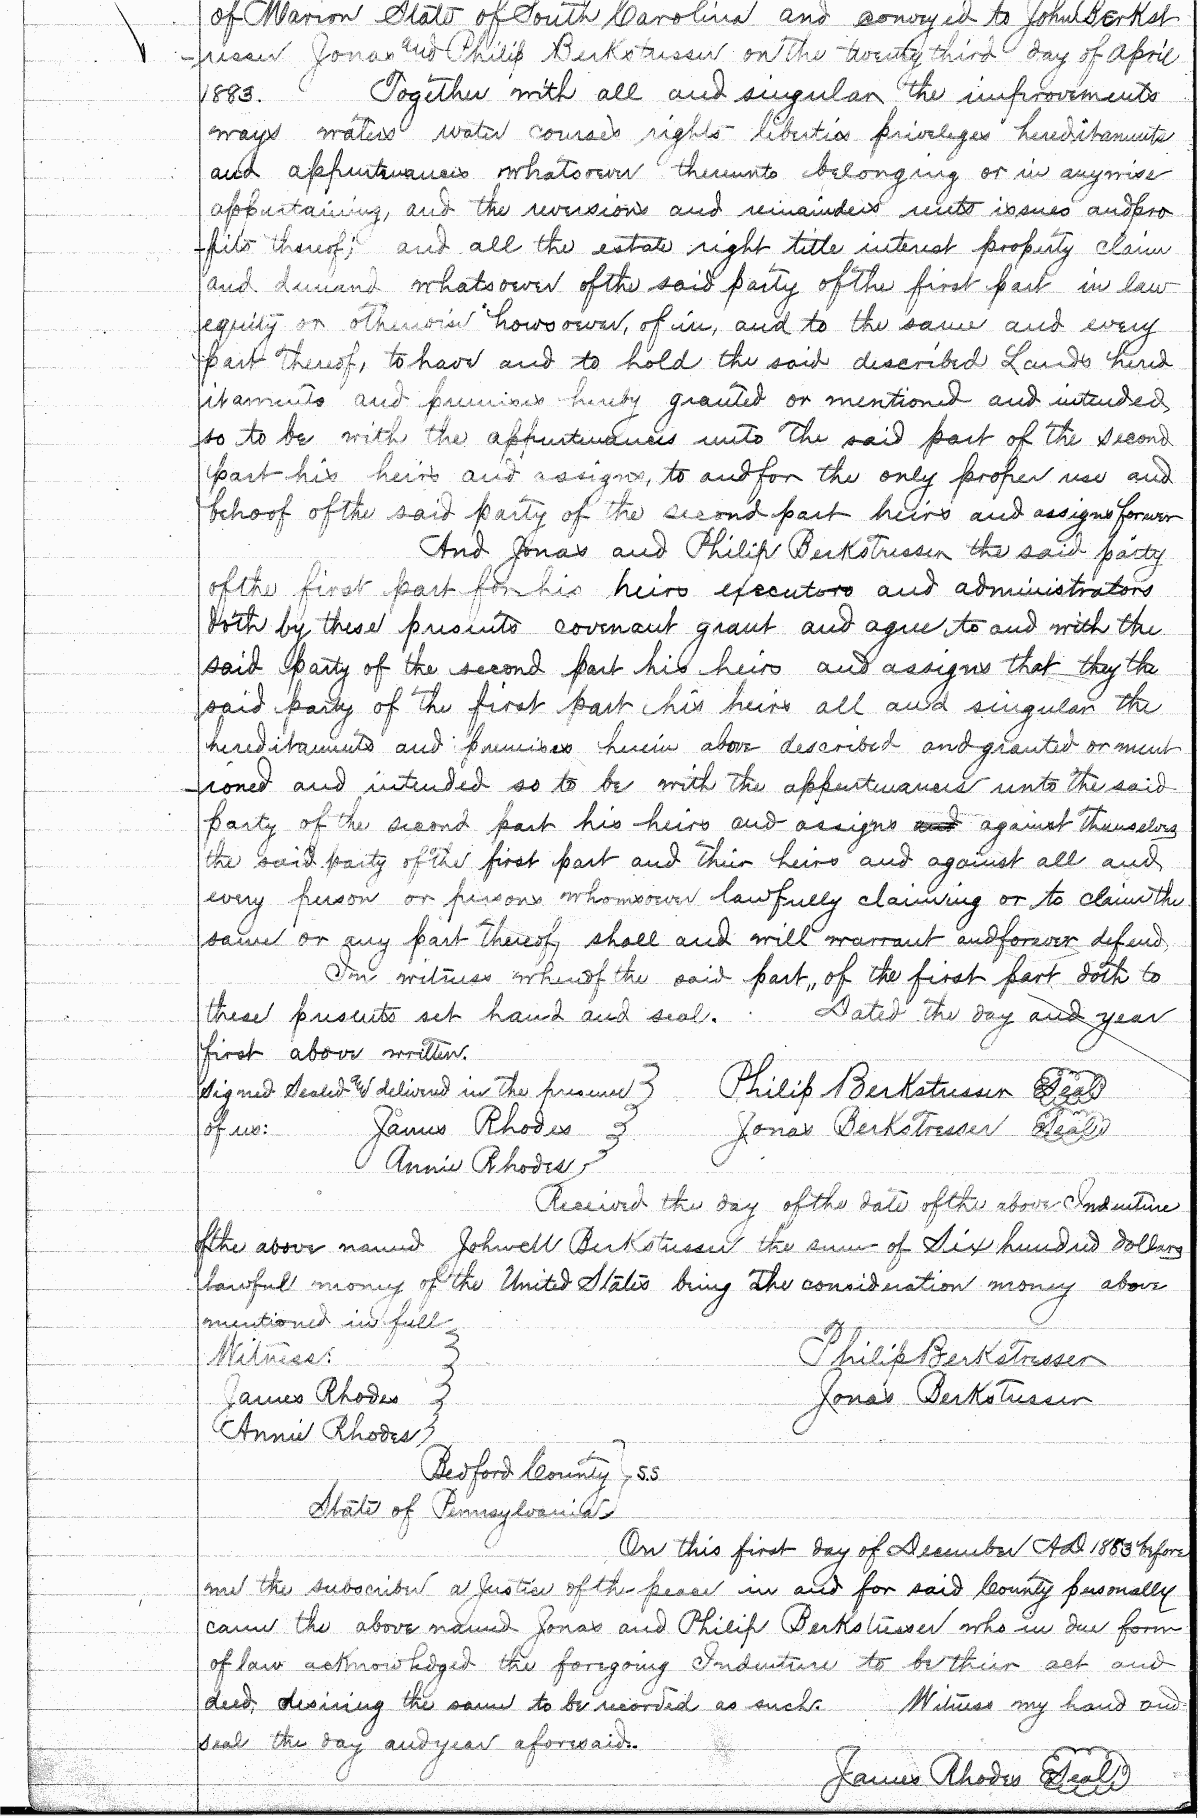 of Marion State of South Carolina and conveyed to John Berkst
-resser Jonas and Philip Berkstresser on the twenty third day of April
1883. Together with all and singular the improvements
ways waters water courses rights liberties priveleges hereditaments
and appurtenances whatsoever thereunto belonging or in anywise
appurtaining, and the reversions and remainders rents issues and pro
-fits thereof; and all the estate right title interest property claim
and demand whatsoever of the said party of the first part in law
equity or otherwise howsoever, of in, and to the same and every
part thereof, to have and to hold the said described Lands hered
itaments and premises hereby granted or mentioned and intended
so to be with the appurtenances unto the said part of the second
part his heirs and assigns, to and for the only proper use and
behoof of the said party of the second part heirs and assigns forever
And Jonas and Philip Berkstresser the said party
of the first part for his heirs executors and administrators
doth by these presents covenant grant and agree, to and with the
said party of the second part his heirs and assigns that they the
said party of the first part his heirs all and singular the
hereditaments and premises herein above described and granted or ment
-ioned and intended so to be with the appurtenances unto the said
party of the second part his heirs and assigns and against themselves
the said party of the first part and their heirs and against all and
every person or persons whomsoever lawfully claiming or to claim the
same or any part thereof, shall and will warrant and forever defend,
In witness whereof the said part,, of the first part doth to
these presents set hand and seal. Dated the day and year
first above written.
Signed Sealed and delivered in the presence } Philip Berkstresser Seal
of us: James Rhodes } Jonas Berkstresser Seal
Annie Rhodes }
Received the day of the date of the above Indenture
of the above named Johnell Berkstresser the sum of Six hundred dollars
lawful money of the United States being the consideration money above
mentioned in full
Witness: } Philip Berkstresser
James Rhodes } Jonas Berkstresser
Annie Rhodes }
Bedford County } S.S
State of Pennsylvania
On this first day of December A.D. 1883 before
me the subscriber a Justice of the peace in and for said County personally
came the above named Jonas and Philip Berkstresser who in due form
of law acknowledged the foregoing Indenture to be their act and
deed, desiring the same to be recorded as such. Witness my hand and
seal the day and year aforesaid.
James Rhodes Seal